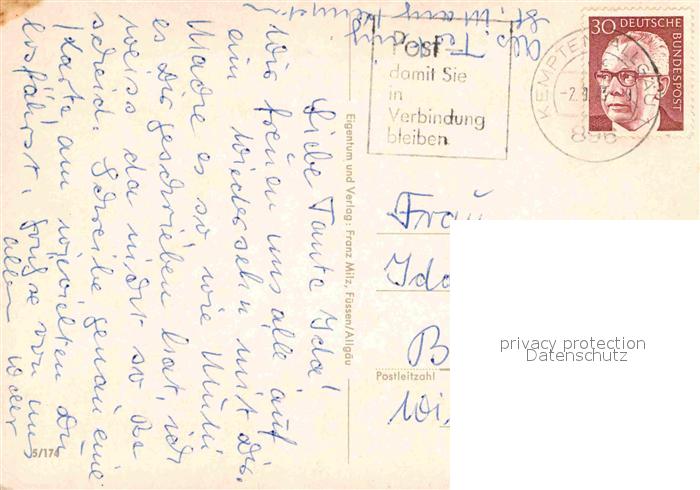 Liebe Tante Ida!
Wir freuen uns alle auf
ein Wiedersehn mit Dir.
Mache es so wie Mutti
es Dir geschrieben hat, ich
weiss da nicht so Be
scheid. Schreibe genau eine
Karte am wievielten Du
losfährst. Grüße von uns
allen
Post
damit Sie
in
Verbindung
bleiben
KEMPTEN
896
30 DEUTSCHE
BUNDESPOST
Eigentum und Verlag: Franz Milz, Füssen/Allgäu
Frau
Ida
B
Postleitzahl
Wi
5/174
privacy protection
Datenschutz